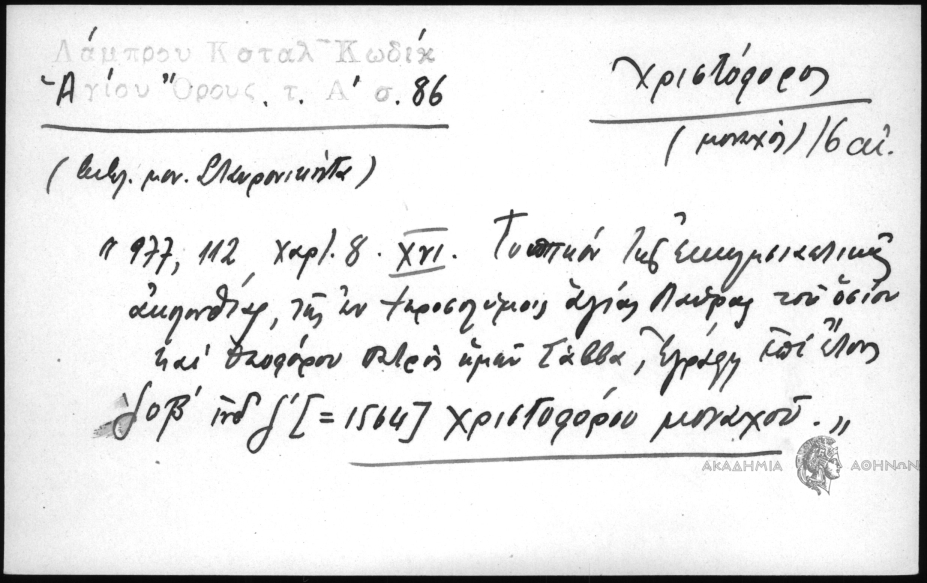 Λάμπρου Καταλ Κωδίκ
Ἁγίου Ὄρους τ. Α' σ. 86
Χριστόφορος
(μοναχὸς) 16 αἰ.
(Βιβλ. μον. Σταυρονικήτα)
" 977, 112 χαρτ. 8. XVI. Τυπικόν τῆς ἐκκλησιαστικῆς
ἀκολουθίας, τῆς ἐν Ἱεροσολύμοις ἁγίας Λαύρας τοῦ ὁσίου
καὶ θεοφόρου πατρὸς ἡμῶν Σάββα, Ἐγράφη ἐπὶ ἔτους
ζοβ' ἰνδ ζ' [=1564] Χριστοφόρου μοναχοῦ. "
ΑΚΑΔΗΜΙΑ ΑΘΗΝΩΝ